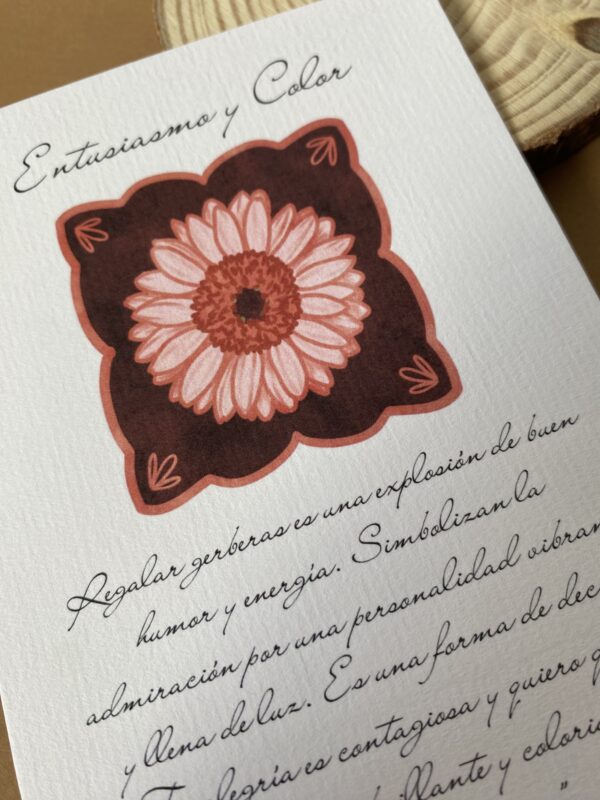 Entusiasmo y Color
Regalar gerberas es una explosión de buen
humor y energía. Simbolizan la
admiración por una personalidad vibran
y llena de luz. Es una forma de dec
alegría es contagiosa y quiero q
llante y colori
"